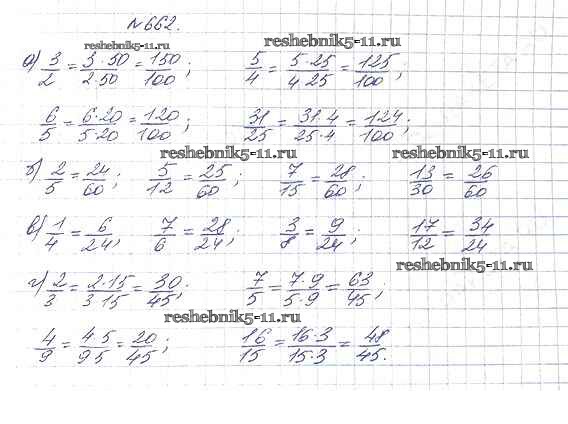 №662.
reshebnik5-11.ru reshebnik5-11.ru
а) 3/2 = 3·50/2·50 = 150/100; 5/4 = 5·25/4·25 = 125/100;
6/5 = 6·20/5·20 = 120/100; 31/25 = 31·4/25·4 = 124/100;
reshebnik5-11.ru reshebnik5-11.ru
б) 2/5 = 24/60; 5/12 = 25/60; 7/15 = 28/60; 13/30 = 26/60
в) 1/4 = 6/24; 7/6 = 28/24; 3/8 = 9/24; 17/12 = 34/24
reshebnik5-11.ru
г) 2/3 = 2·15/3·15 = 30/45; 7/5 = 7·9/5·9 = 63/45;
reshebnik5-11.ru
4/9 = 4·5/9·5 = 20/45; 16/15 = 16·3/15·3 = 48/45.